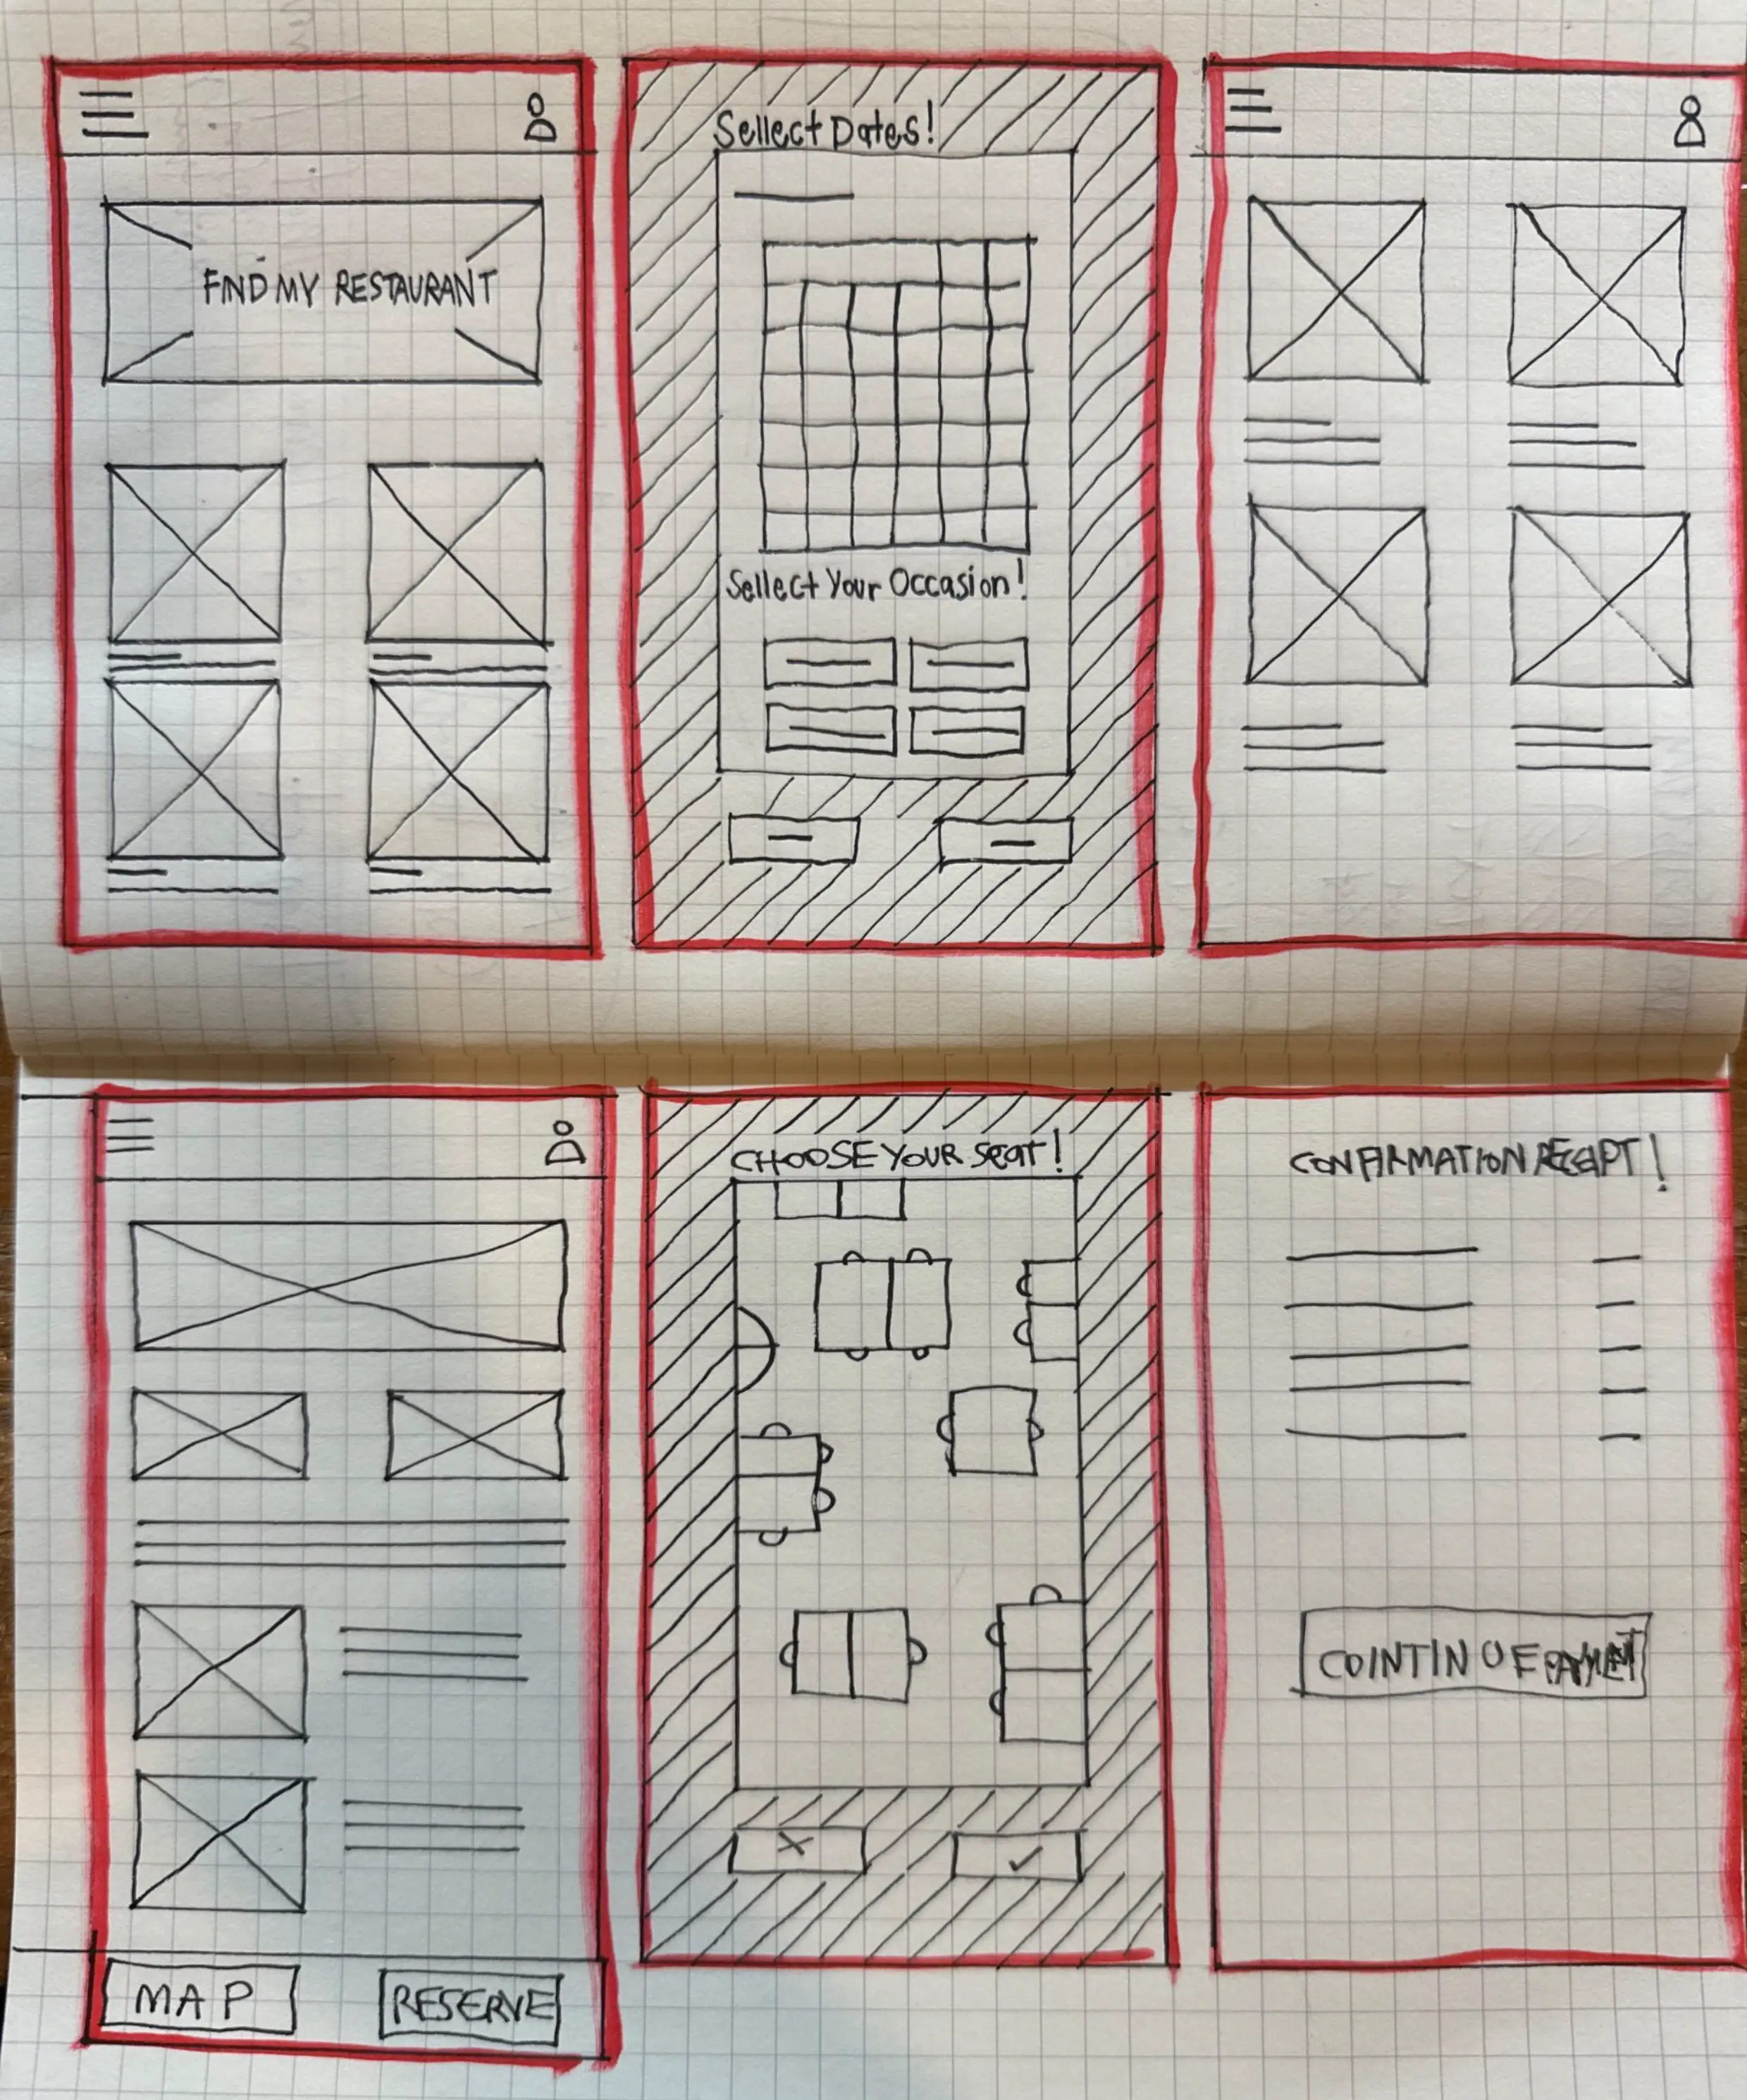 FIND MY RESTAURANT
Sellect Dates!
Sellect Your Occasion!
CHOOSE YOUR SEAT!
CONFIRMATION RECEIPT!
COINTINUE PAYMENT
MAP
RESERVE